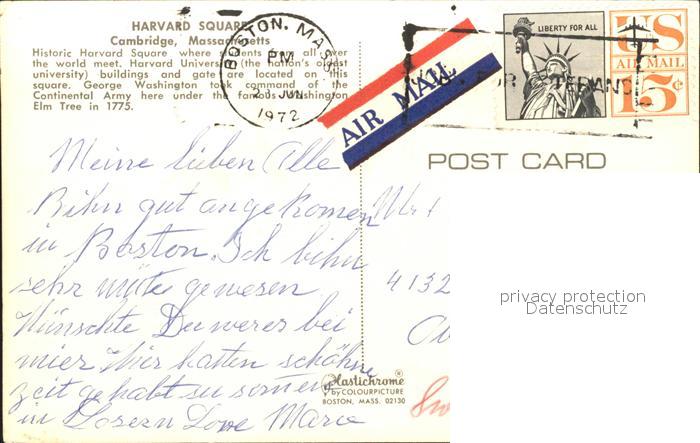 HARVARD SQUARE
Cambridge, Massachusetts
Historic Harvard Square where students from all over
the world meet. Harvard University (the nation's oldest
university) buildings and gate are located on this
square. George Washington took command of the
Continental Army here under the famous Washington
Elm Tree in 1775.
BOSTON, MASS.
PM
JUN
1972
AIR MAIL
LIBERTY FOR ALL
US
AIR MAIL
15¢
POST CARD
Meine lieben Alle
Bihn gut angekomen
in Boston. Ich bihn
sehr müte gewesen
Wünschte Du werer bei
mier Wier hatten schöhne
zeit gehabt zu
in Love Marie
4132
privacy protection
Datenschutz
plastichrome®
by COLOURPICTURE
BOSTON, MASS. 02130